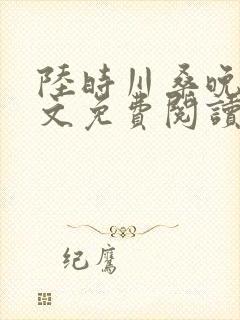 陸時川桑晚
文免費閱讀
纪鹰